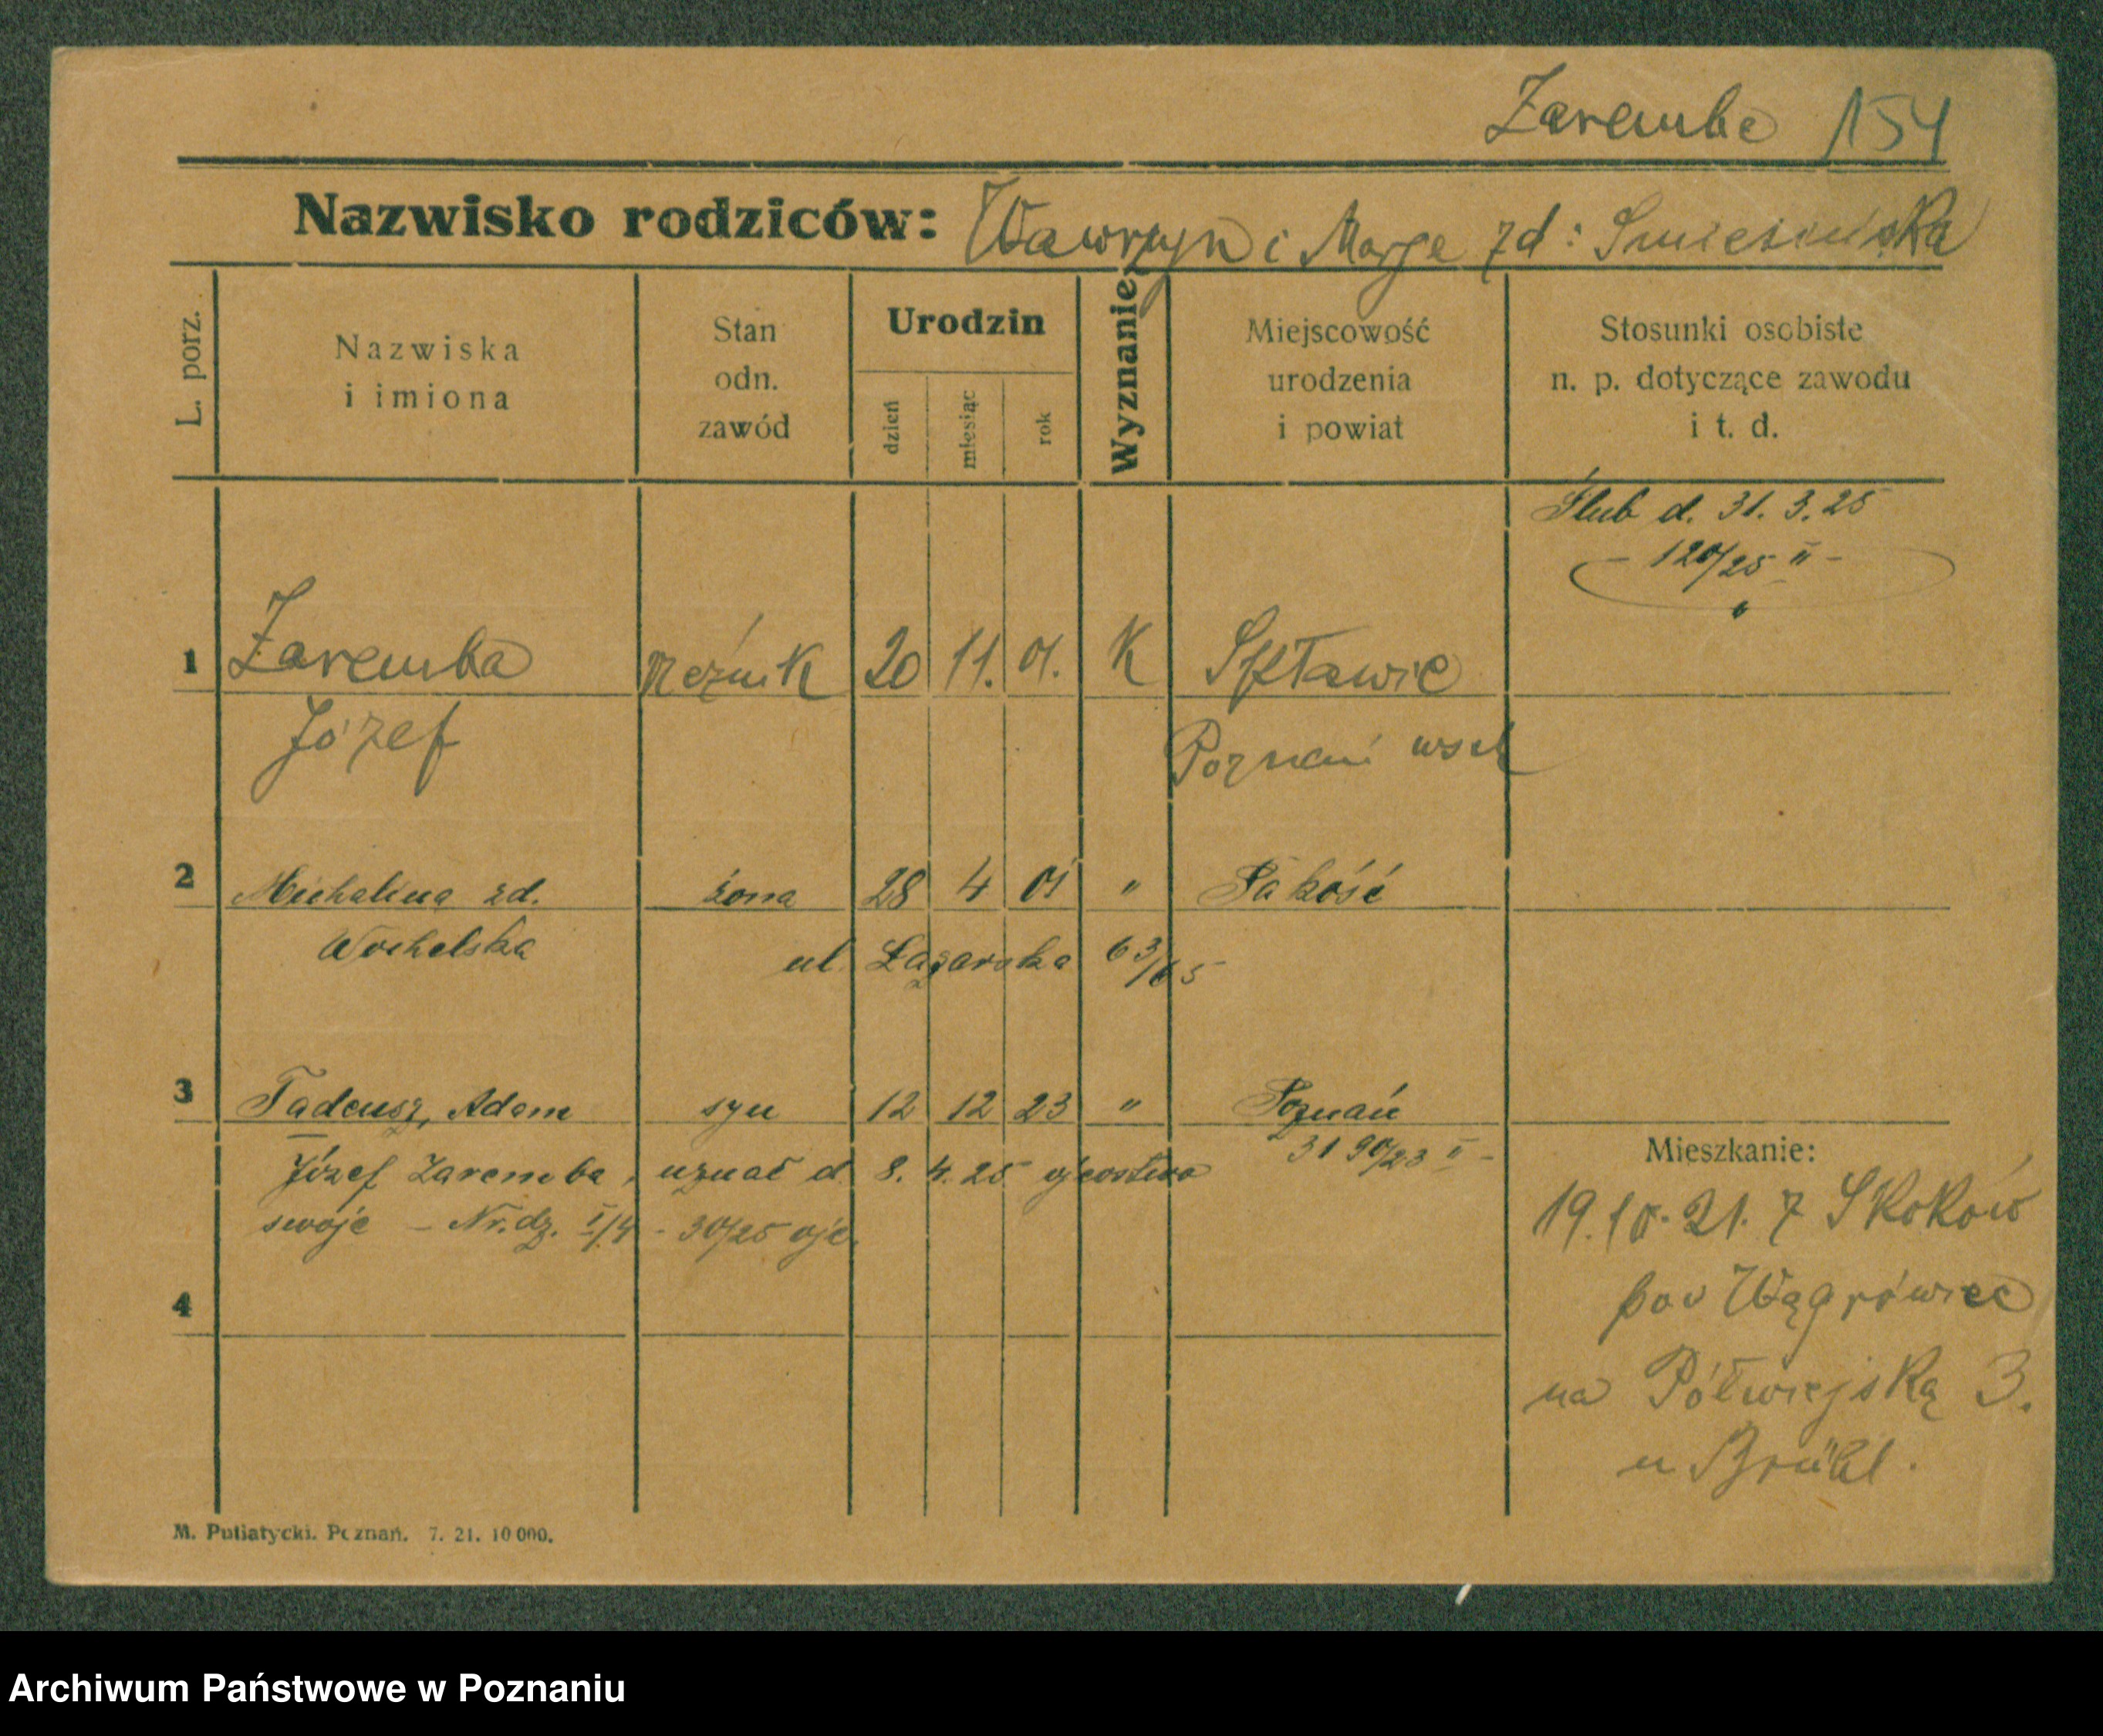 Zaremba 154
Nazwisko rodziców: Wawrzyn i Marja zd: Smiesińska
L. porz.
Nazwiska
i imiona
Stan
odn.
zawód
Urodzin
dzień
miesiąc
rok
Wyznanie
Miejscowość
urodzenia
i powiat
Stosunki osobiste
n. p. dotyczące zawodu
i t. d.
Ślub d. 31. 3. 25
- 120/25 II -
1 Zaremba rzeźnik 20 11. 01. K
Józef Poznań wsch
2 Michalina zd. żona 28 4 01 " Pakość
Wochelska ul. Łazarska 63/65
3 Tadeusz, Adam syn 12 12 23 " Poznań
3190/23 II -
Józef Zaremba, uznał d. 8. 4. 25 ojcostwo
swoje - Nr. dz. I/4 - 30/25 ojc.
4
Mieszkanie:
19.10.21. z Skoków
pow Wągrówiec
na Półwiejską 3.
u Brühl.
M. Putiatycki. Poznań. 7. 21. 10 000.
Archiwum Państwowe w Poznaniu